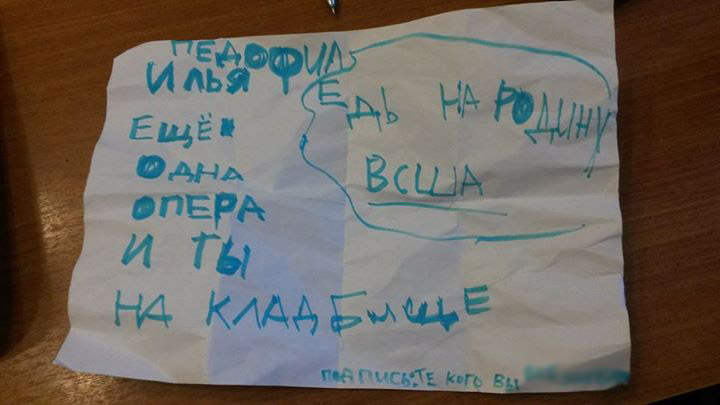 ПЕДОФИЛ
ИЛЬЯ
ЕЩЁ
ОДНА
ОПЕРА
И ТЫ
НА КЛАДБИЩЕ
ЕДЬ НА РОДИНУ
ВСША
ПОДПИСЬ: ТЕ КОГО ВЫ